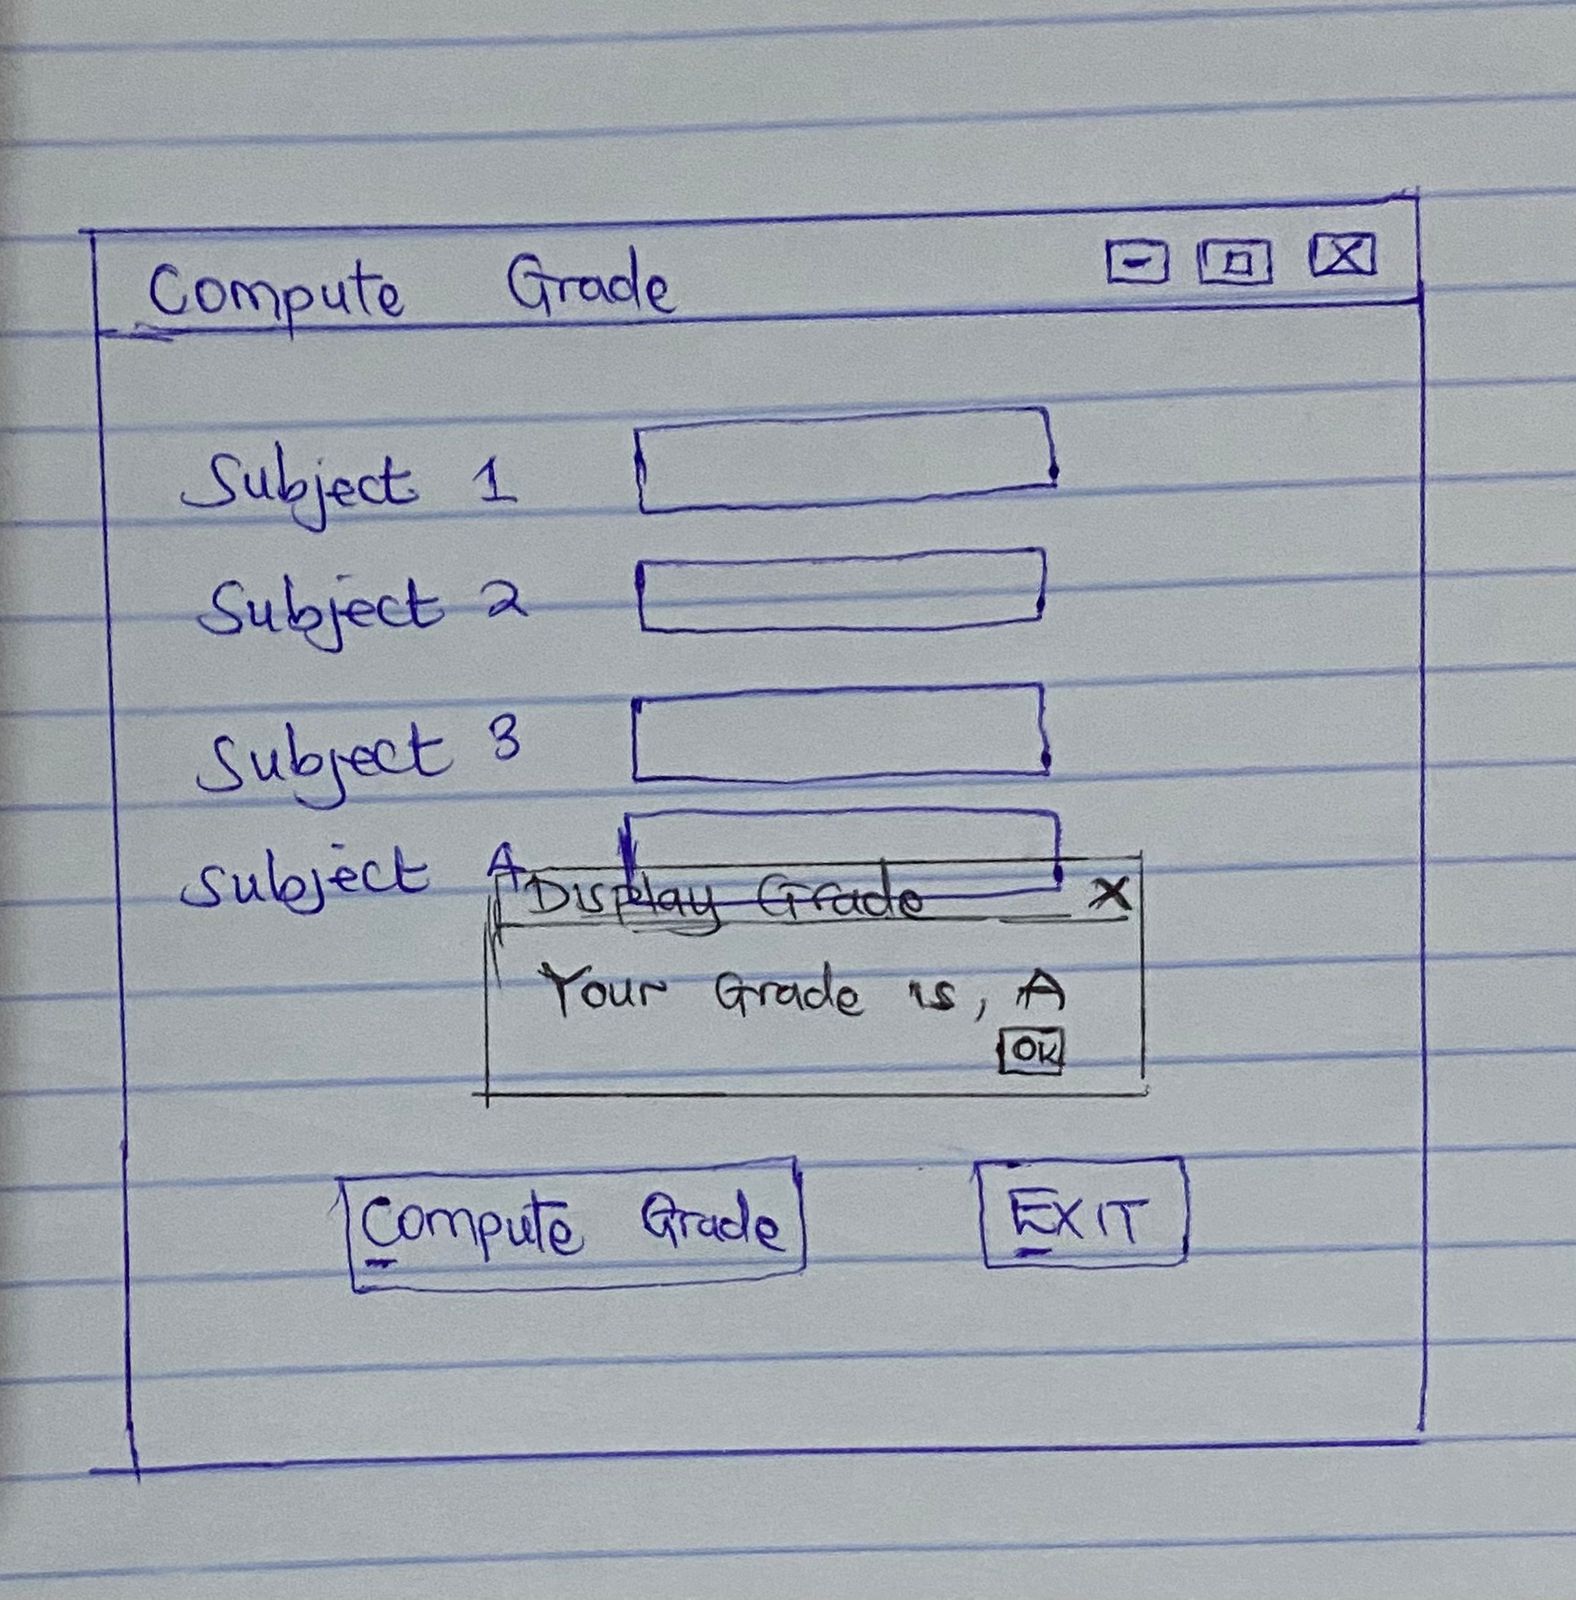 Compute Grade
Subject 1
Subject 2
Subject 3
Subject 4
Display Grade X
Your Grade is, A
OK
Compute Grade EXIT